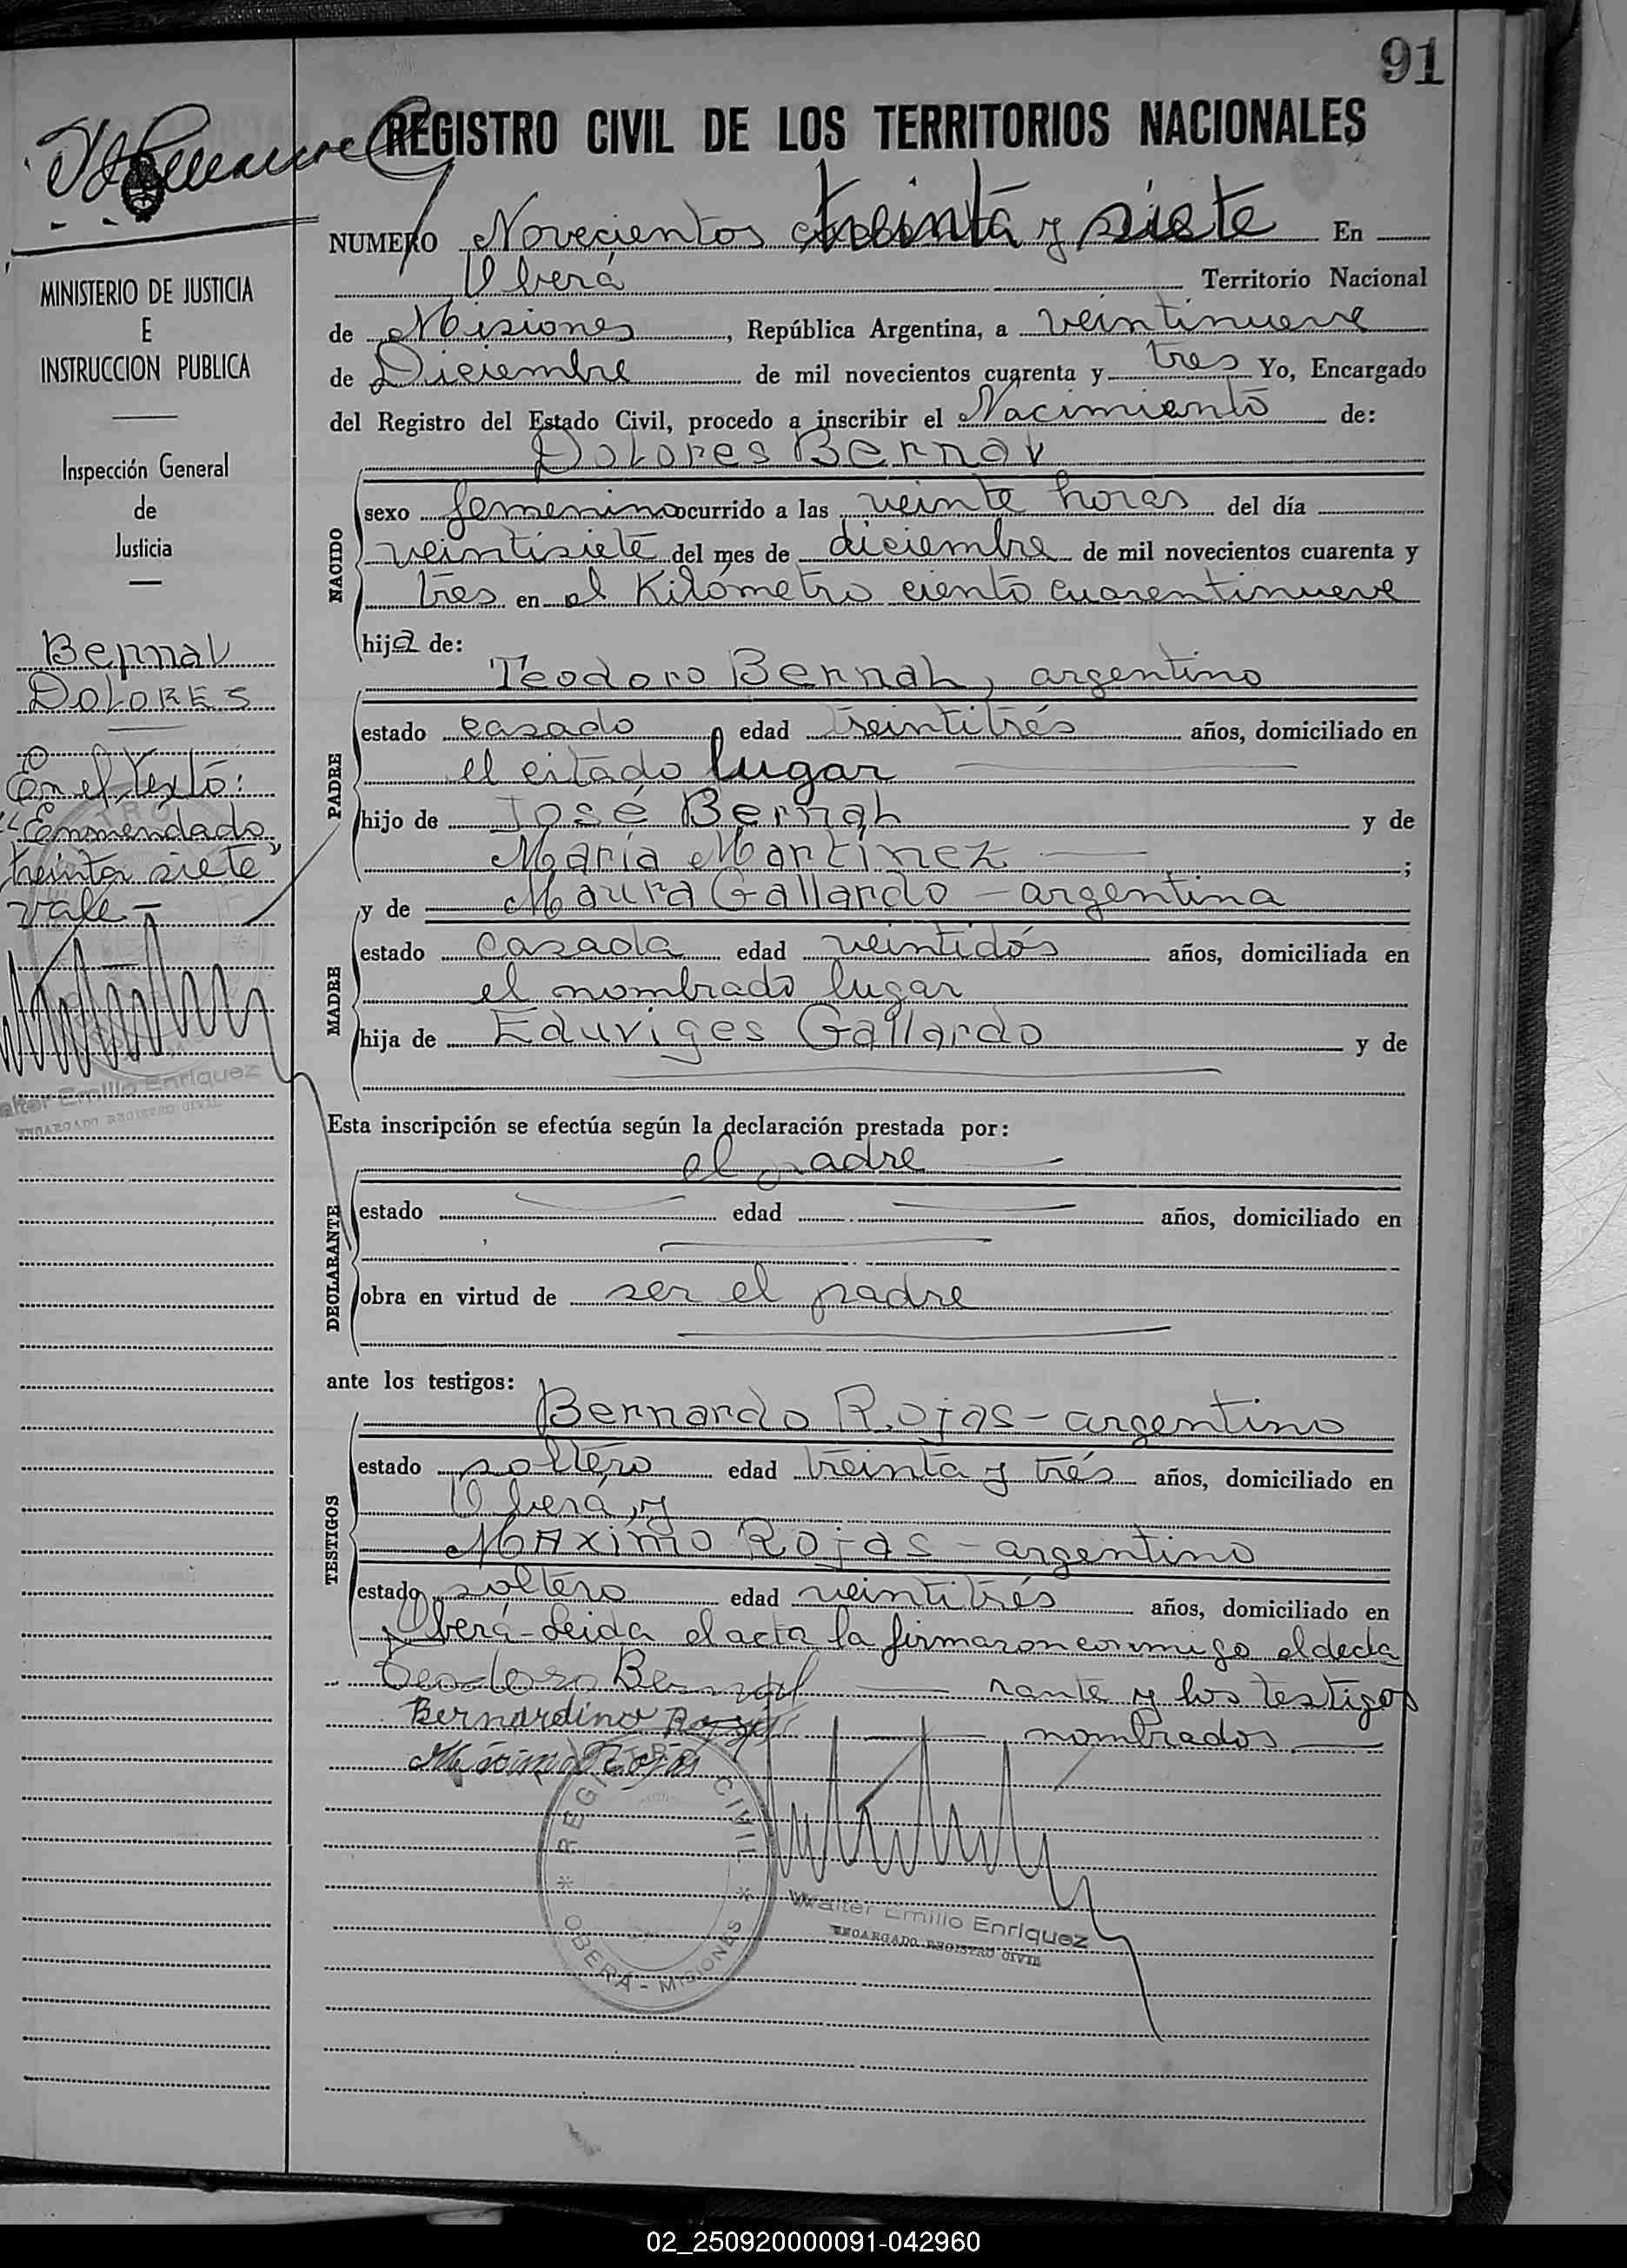 91
REGISTRO CIVIL DE LOS TERRITORIOS NACIONALES
NUMERO Novecientos treinta y siete En
Oberá Territorio Nacional
de Misiones, República Argentina, a veintinueve
de Diciembre de mil novecientos cuarenta y tres Yo, Encargado
del Registro del Estado Civil, procedo a inscribir el Nacimiento de:
Dolores Bernal
NACIDO
sexo femenino ocurrido a las veinte horas del día
veintisiete del mes de diciembre de mil novecientos cuarenta y
tres en el Kilómetro ciento cuarentinueve
hija de:
Teodoro Bernal, argentino
PADRE
estado casado edad treintitrés años, domiciliado en
el citado lugar
hijo de José Bernal y de
María Martinez ;
y de Maura Gallardo - argentina
MADRE
estado casada edad veintidós años, domiciliada en
el nombrado lugar
hija de Eduviges Gallardo y de
Esta inscripción se efectúa según la declaración prestada por:
el padre
DECLARANTE
estado edad años, domiciliado en
obra en virtud de ser el padre
ante los testigos:
Bernardo Rojas - argentino
TESTIGOS
estado soltero edad treinta y trés años, domiciliado en
Oberá, y
Máximo Rojas - argentino
estado soltero edad veintitrés años, domiciliado en
Oberá - Leida el acta la firmaron conmigo el decla
Teodoro Bernal rante y los testigos
Bernardino nombrados
REGISTRO CIVIL
OBERÁ - MISIONES
Walter Emilio Enriquez
ENCARGADO REGISTRO CIVIL
MINISTERIO DE JUSTICIA
E
INSTRUCCION PUBLICA
Inspección General
de
Justicia
Bernal
DOLORES
En el texto:
"Enmendado
treinta siete"
vale -
Walter Emilio Enriquez
ENCARGADO REGISTRO CIVIL
02_250920000091-042960